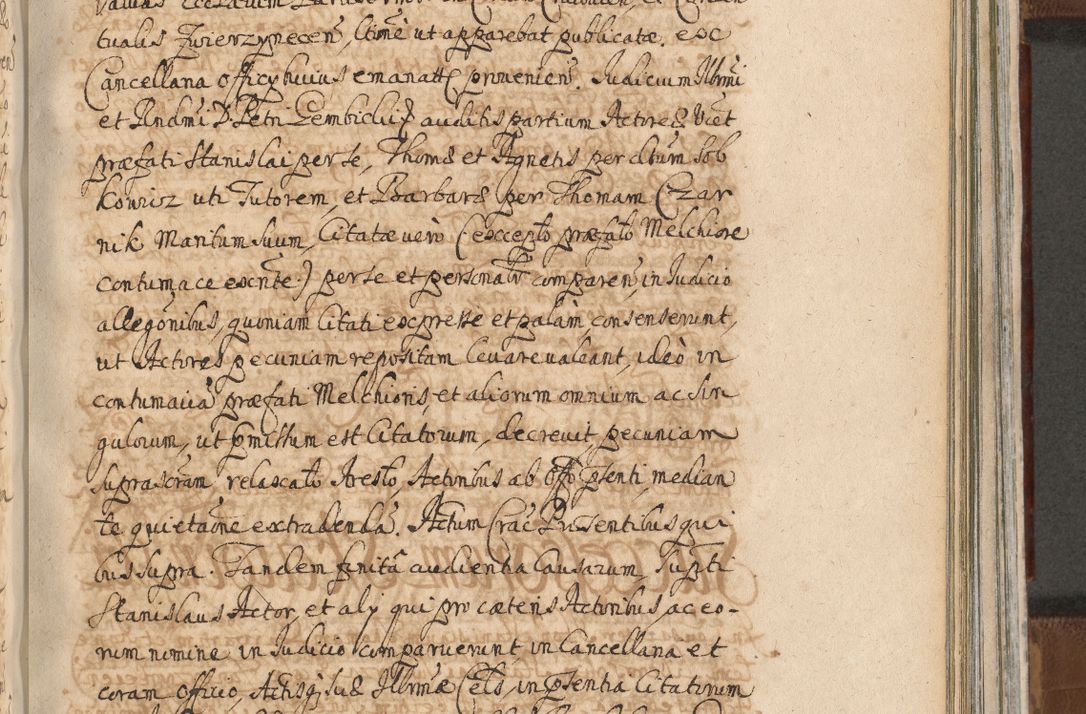 tualis Zwierzynecen, ltime ut apparebat publicatæ, exc
Cancellaria officy huius emanatt provenien. Judicium Illrmi
et Rndmi D. Petri Gembicki auditis partium Actoreæ vict
præfati Stanislai per se, Thomæ et Agnetis per dtum Sob
kowicz uti Tutorem, et Barbaræ per Thomam Czar
nik Maritum suum, Citatæ vero (excepto præfato Melchiore
contumace exnte) per se et personalr comparen, in Judicio
allegonibus, quoniam Citati expresse et palam consenserunt,
ut Actores pecuniam repositam levare valeant, ideò in
contumaciā præfati Melchioris, et aliorum omnium ac sin
gulorum, ut pmissum est Citatorum, decrevit pecuniam
suprascram relaxato Aresto, Actoribus ab offo psenti, median
te quietaōne extradendā. Actum Crac Præsentibus qui
bus supra. Tandem finitā audientia Causarum, supti
Stanislaus Actor, et aly qui pro cæteris Actoribus, ac eo-
rum nomine in Judicio comparuerunt, in Cancellaria et
coram Officio, Actisq; suæ Illrmæ Cels, in psentia Citatorum